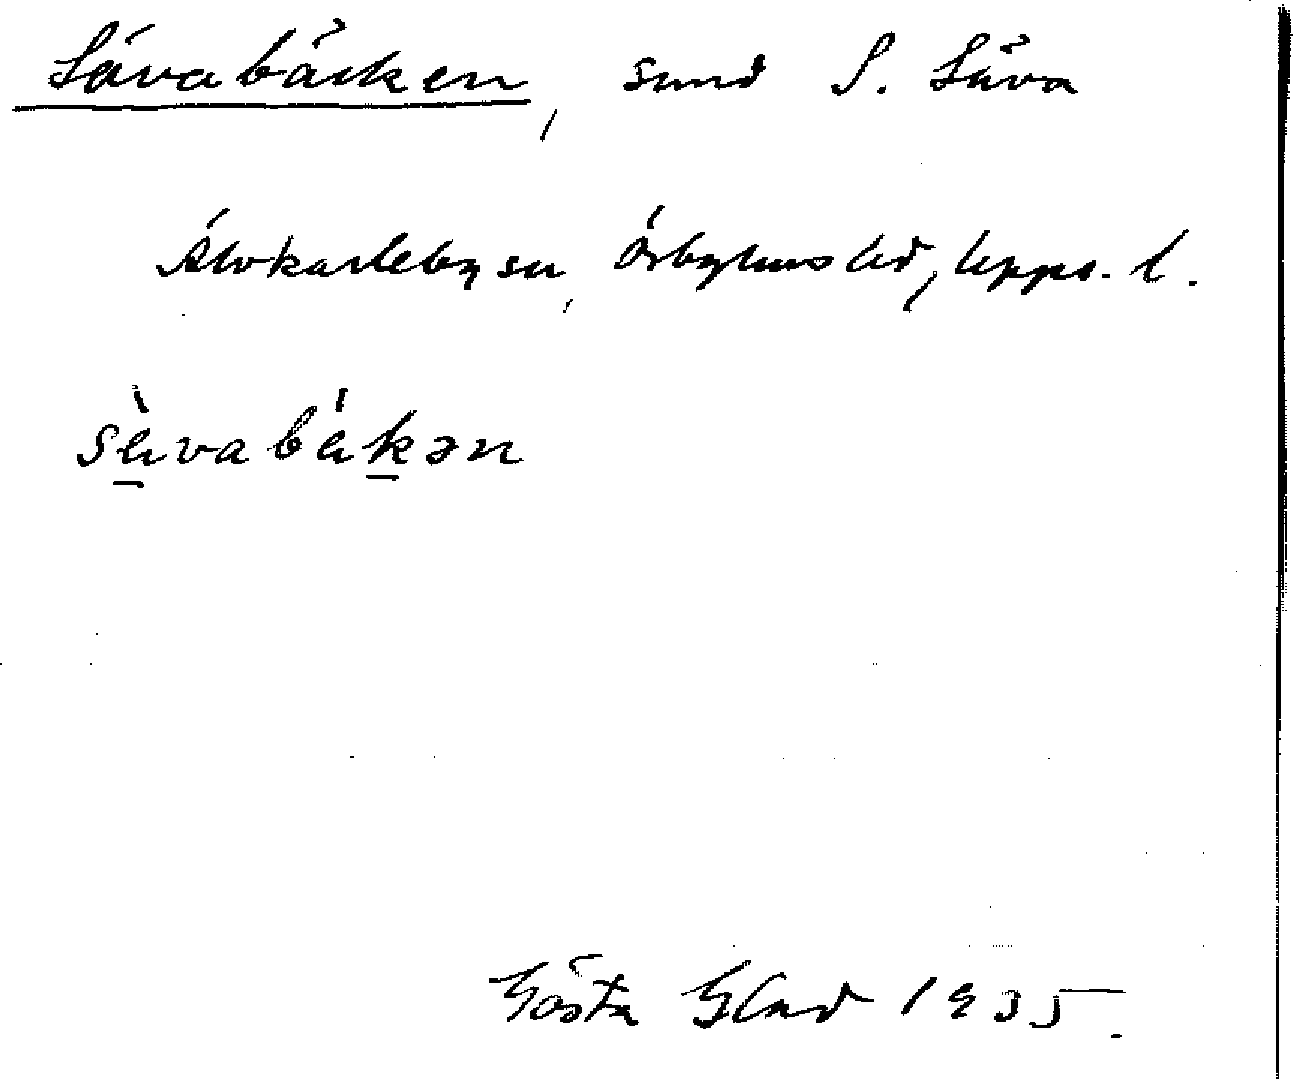 Sävabäcken, sund S. Säva
Älvkarleby sn, Örbyhus hd, Upps. l.
sèvabékən
Gösta Glad 1935.